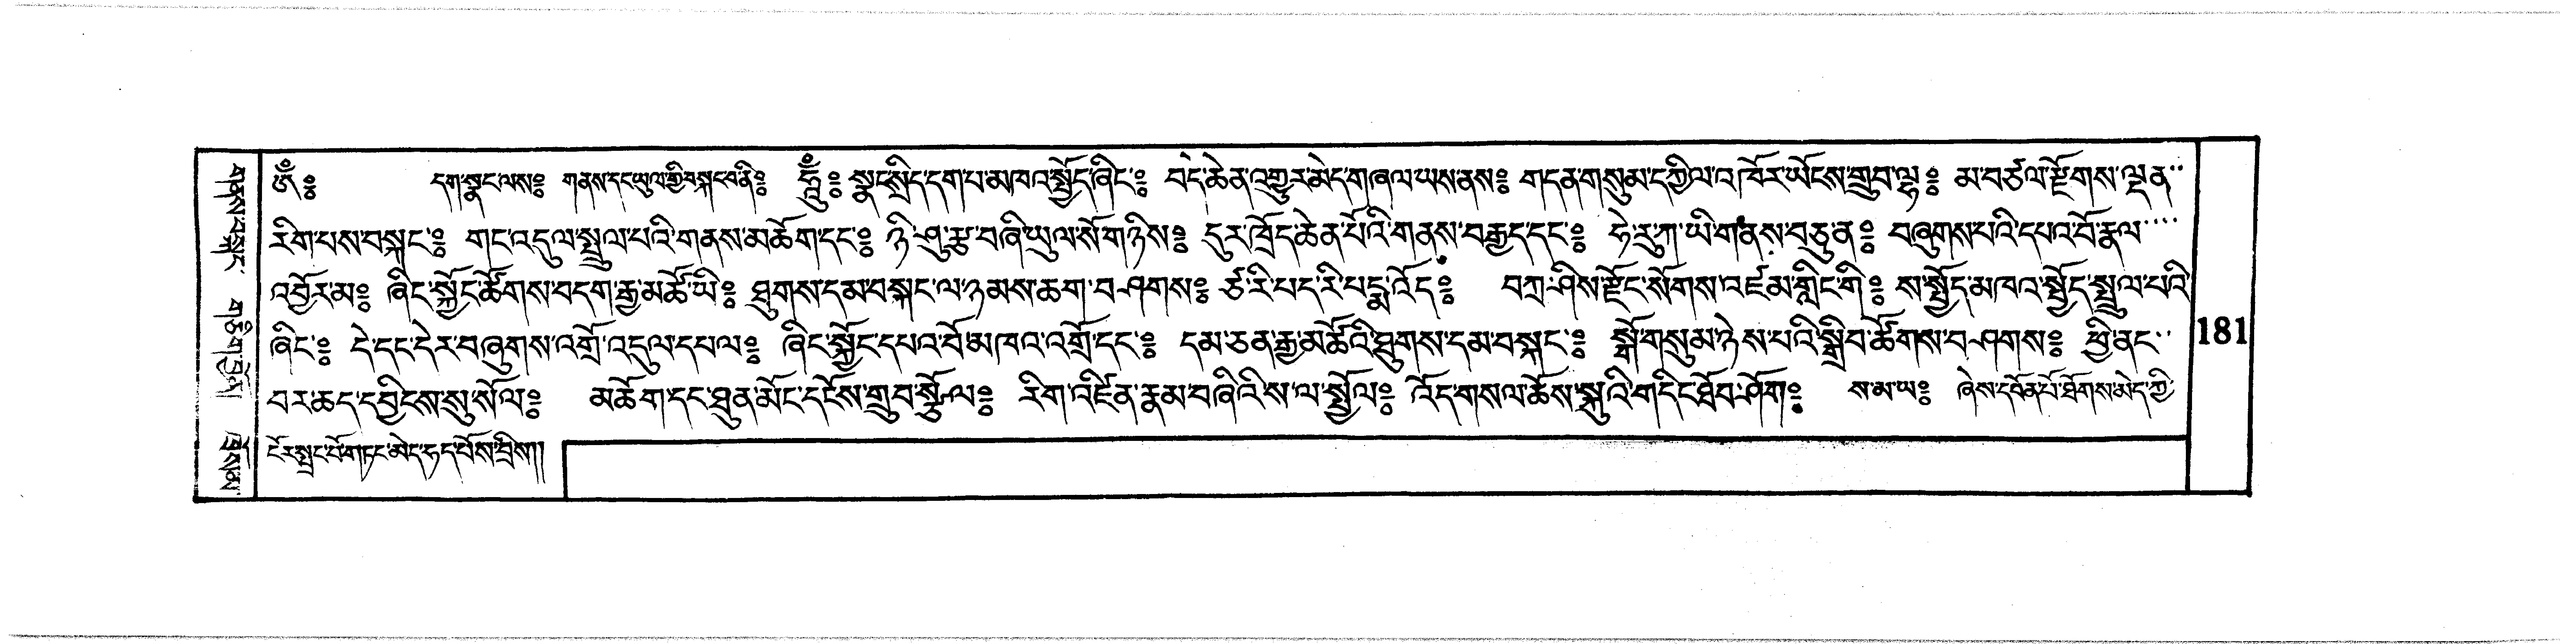 ༀ༔ དག་སྣང་ལས༔ གནས་དང་ཡུལ་གྱི་བསྐང་བ་ནི༔ ཧཱུྃ༔ སྣང་སྲིད་དག་པ་མཁའ་སྤྱོད་ཞིང་༔ བདེ་ཆེན་འགྱུར་མེད་གཞལ་ཡས་ནས༔ གདན་གསུམ་དཀྱིལ་འཁོར་ཡོངས་གྲུབ་ལྷ༔ མ་བཙལ་རྫོགས་ལྡན
རིག་པས་བསྐང་༔ གང་འདུལ་སྤྲུལ་པའི་གནས་མཆོག་དང་༔ ཉི་ཤུ་རྩ་བཞི་ཡུལ་སོ་གཉིས༔ དུར་ཁྲོད་ཆེན་པོའི་གནས་བརྒྱད་དང་༔ ཧེ་རུ་ཀ་ཡི་གནས་བཅུན༔ བཞུགས་པའི་དཔའ་བོ་རྣལ
འབྱོར་མ༔ ཞིང་སྐྱོང་ཚོགས་བདག་རྒྱ་མཚོ་ཡི༔ ཐུགས་དམ་བསྐང་ལ་ཉམས་ཆག་བཤགས༔ ཙ་རི་པད་རི་པདྨ་འོད༔ བཀྲ་ཤིས་རྫོང་སོགས་འཛམ་གླིང་གི༔ ས་སྤྱོད་མཁའ་སྤྱོད་སྤྲུལ་པའི
ཞིང་༔ དེ་དང་དེར་བཞུགས་འགྲོ་འདུལ་དཔལ༔ ཞིང་སྐྱོང་དཔའ་བོ་མཁའ་འགྲོ་དང་༔ དམ་ཅན་རྒྱ་མཚོའི་ཐུགས་དམ་བསྐང་༔ སྒོ་གསུམ་ཉེས་པའི་སྒྲིབ་ཚོགས་བཤགས༔ ཕྱི་ནང
བར་ཆད་དབྱིངས་སུ་སོལ༔ མཆོག་དང་ཐུན་མོང་དངོས་གྲུབ་སྩོལ༔ རིག་འཛིན་རྣམ་བཞིའི་ས་ལ་སྤྱོལ༔ འོད་གསལ་ཆོས་སྐུའི་གདིང་ཐོབ་ཤོག༔ ས་མ་ཡ༔ ཞེས་དབོན་པོ་ཐོགས་མེད་ཀྱི
ངོར་སྤྲང་པོ་གཏང་མེད་དད་པོས་བྲིས།།
181